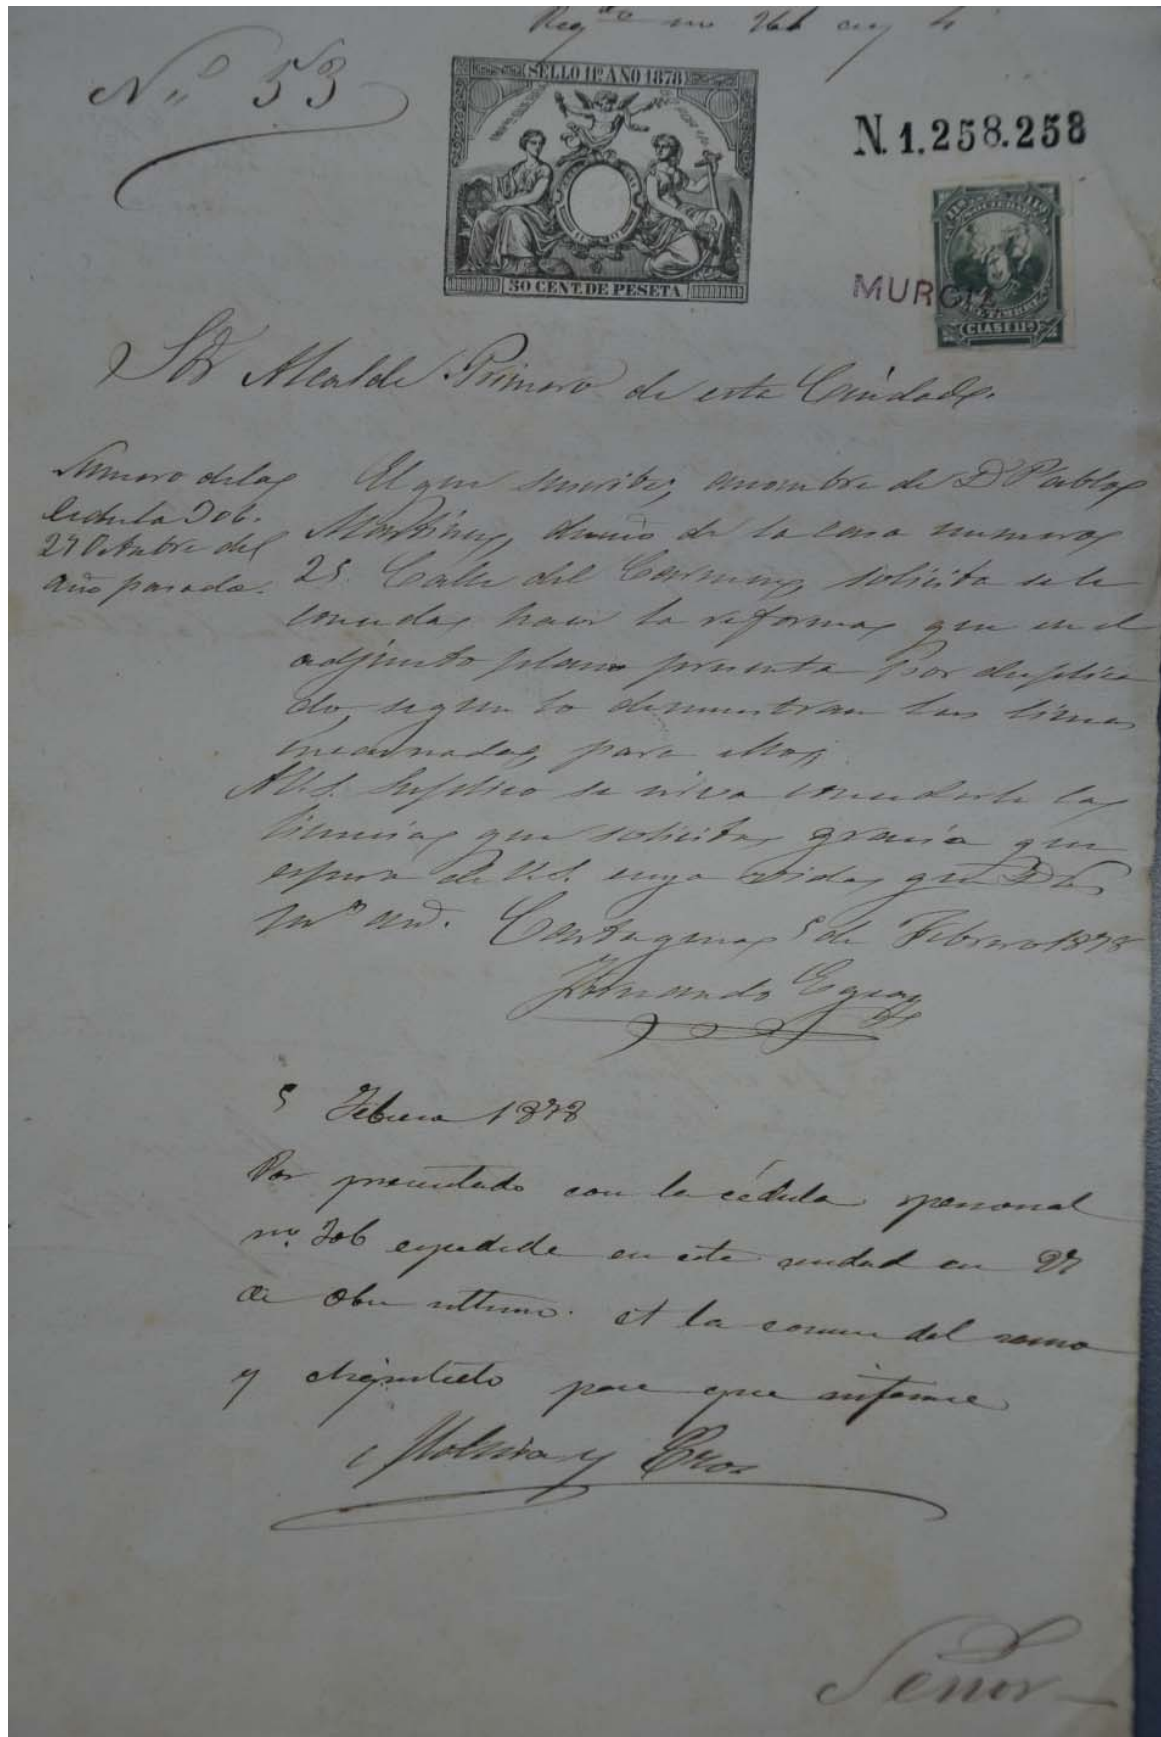 Reg.do no 266 cuy 4
Nº 53
SELLO 11º AÑO 1878
50 CENT. DE PESETA
N. 1.258.258
MURCIA
CLASE 11ª
Sor Alcalde Primero de esta Ciudad.
Numero de la
Cedula 306.
27 Octubre del
año pasado.
El que suscribe, a nombre de Dn Pablo
Martinez, dueño de la casa numero
25. Calle del Carmen, solicita se le
conceda hacer la reforma que en el
adjunto plano presenta por duplica
do, segun lo demuestran las lineas
encarnadas, para ello,
A V.S. Suplico se sirva concederle la
licencia que solicita gracia que
espera de V.S. cuya vida gue Ds
ms ans. Cartagena 5 de Febrero 1878
Fernando Egea
5 Febrero 1878
Por presentado con la cédula personal
no. 306 expedida en esta ciudad en 27
de Obre ultimo. A la comon del ramo
y arquitecto para que informe
Molina y Cros
Señor